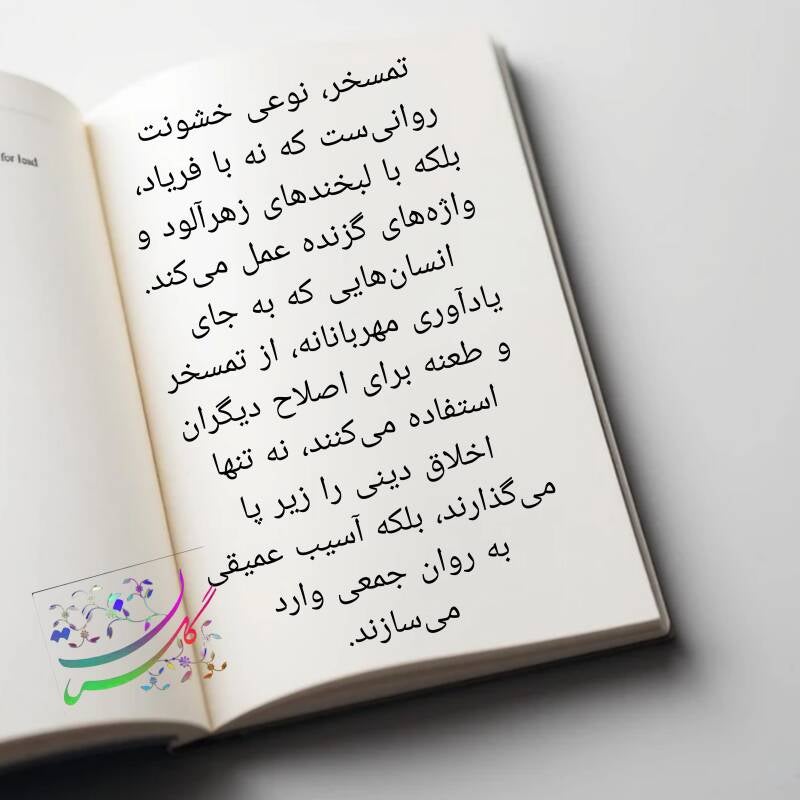 for load
تمسخر، نوعی خشونت
روانی‌ست که نه با فریاد،
بلکه با لبخندهای زهرآلود و
واژه‌های گزنده عمل می‌کند.
انسان‌هایی که به جای
یادآوری مهربانانه، از تمسخر
و طعنه برای اصلاح دیگران
استفاده می‌کنند، نه تنها
اخلاق دینی را زیر پا
می‌گذارند، بلکه آسیب عمیقی
به روان جمعی وارد
می‌سازند.
گلستان